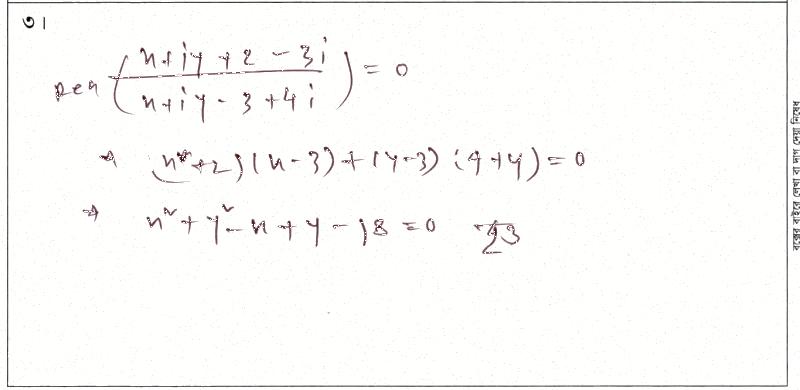 ৩।
Real ( (x+iy+2-3i) / (x+iy-3+4i) ) = 0
⇒ (x+2)(x-3)+(y-3)(4+y)=0
⇒ x²+y²-x+y-18=0
বক্সের বাইরে লেখা বা দাগ দেয়া নিষেধ